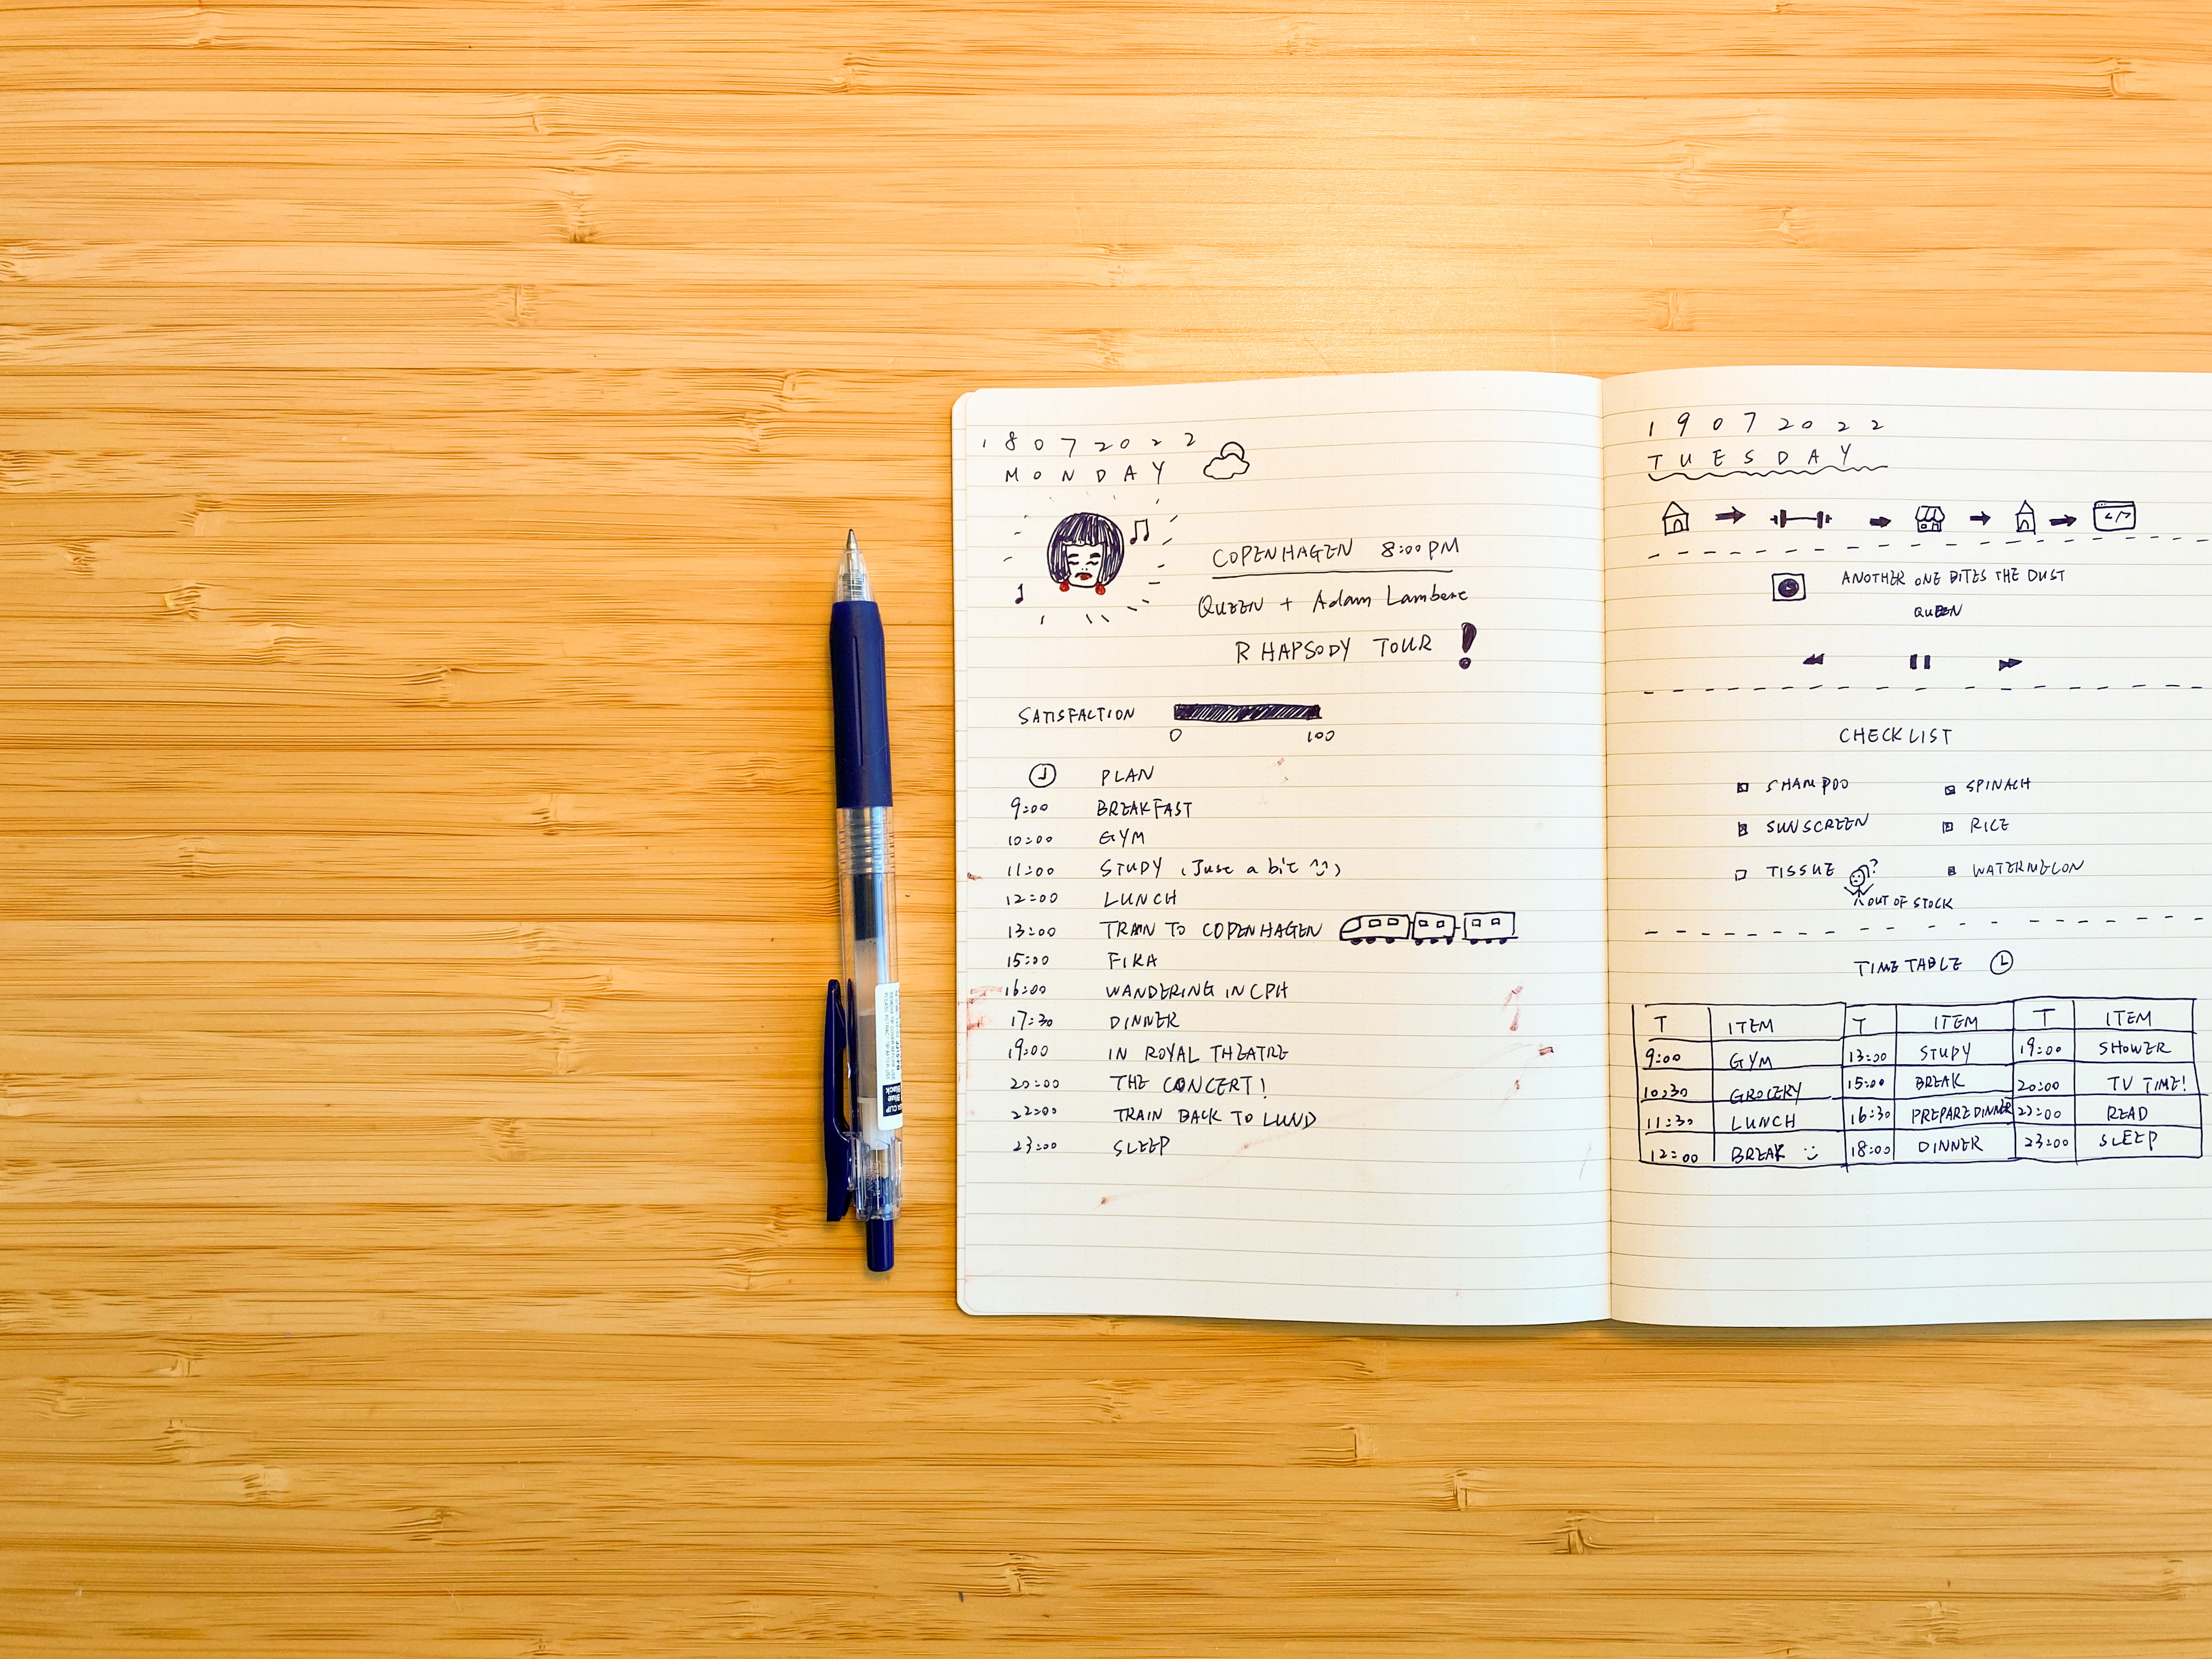 18072022
MONDAY
COPENHAGEN 8:00PM
QUEEN + Adam Lambert
RHAPSODY TOUR !
SATISFACTION
0 100
PLAN
9:00 BREAKFAST
10:00 GYM
11:00 STUDY (Just a bit ^^)
12:00 LUNCH
13:00 TRAIN TO COPENHAGEN
15:00 FIKA
16:00 WANDERING IN CPH
17:30 DINNER
19:00 IN ROYAL THEATRE
20:00 THE CONCERT!
22:00 TRAIN BACK TO LUND
23:00 SLEEP
19072022
TUESDAY
</>
ANOTHER ONE BITES THE DUST
QUEEN
CHECKLIST
SHAMPOO SPINACH
SUNSCREEN RICE
TISSUE ? WATERMELON
OUT OF STOCK
TIME TABLE
T ITEM T ITEM T ITEM
9:00 GYM 13:00 STUDY 19:00 SHOWER
10:30 GROCERY 15:00 BREAK 20:00 TV TIME!
11:30 LUNCH 16:30 PREPARE DINNER 22:00 READ
12:00 BREAK :) 18:00 DINNER 23:00 SLEEP
CLIP
Blue Black